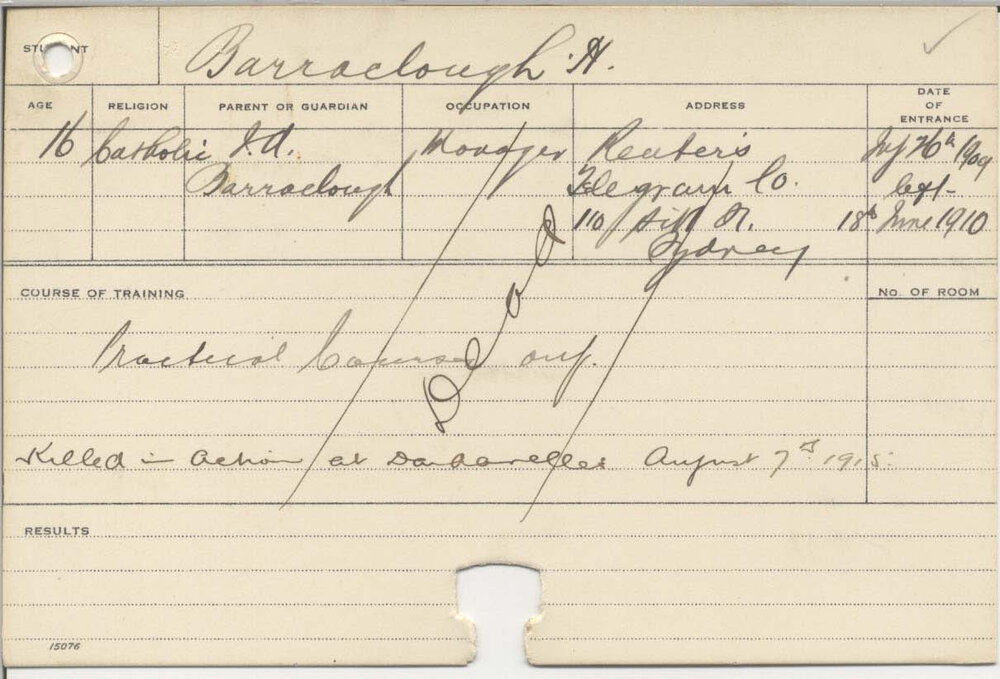 STUDENT Barraclough. H.
AGE RELIGION PARENT OR GUARDIAN OCCUPATION ADDRESS DATE OF ENTRANCE
16 Catholic J. A. Manager Reuter's July 26th 1909
Barraclough Telegram Co. left
110 Pitt St. 18th June 1910
Sydney
COURSE OF TRAINING No. OF ROOM
Dead
Practical Course only.
Killed in action at Dardanelles August 7th 1915.
RESULTS
15076